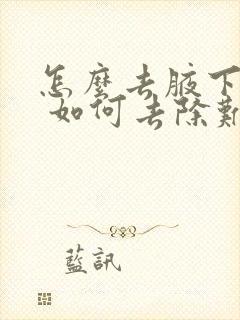 怎麼去腋下
如何去除
藍訊